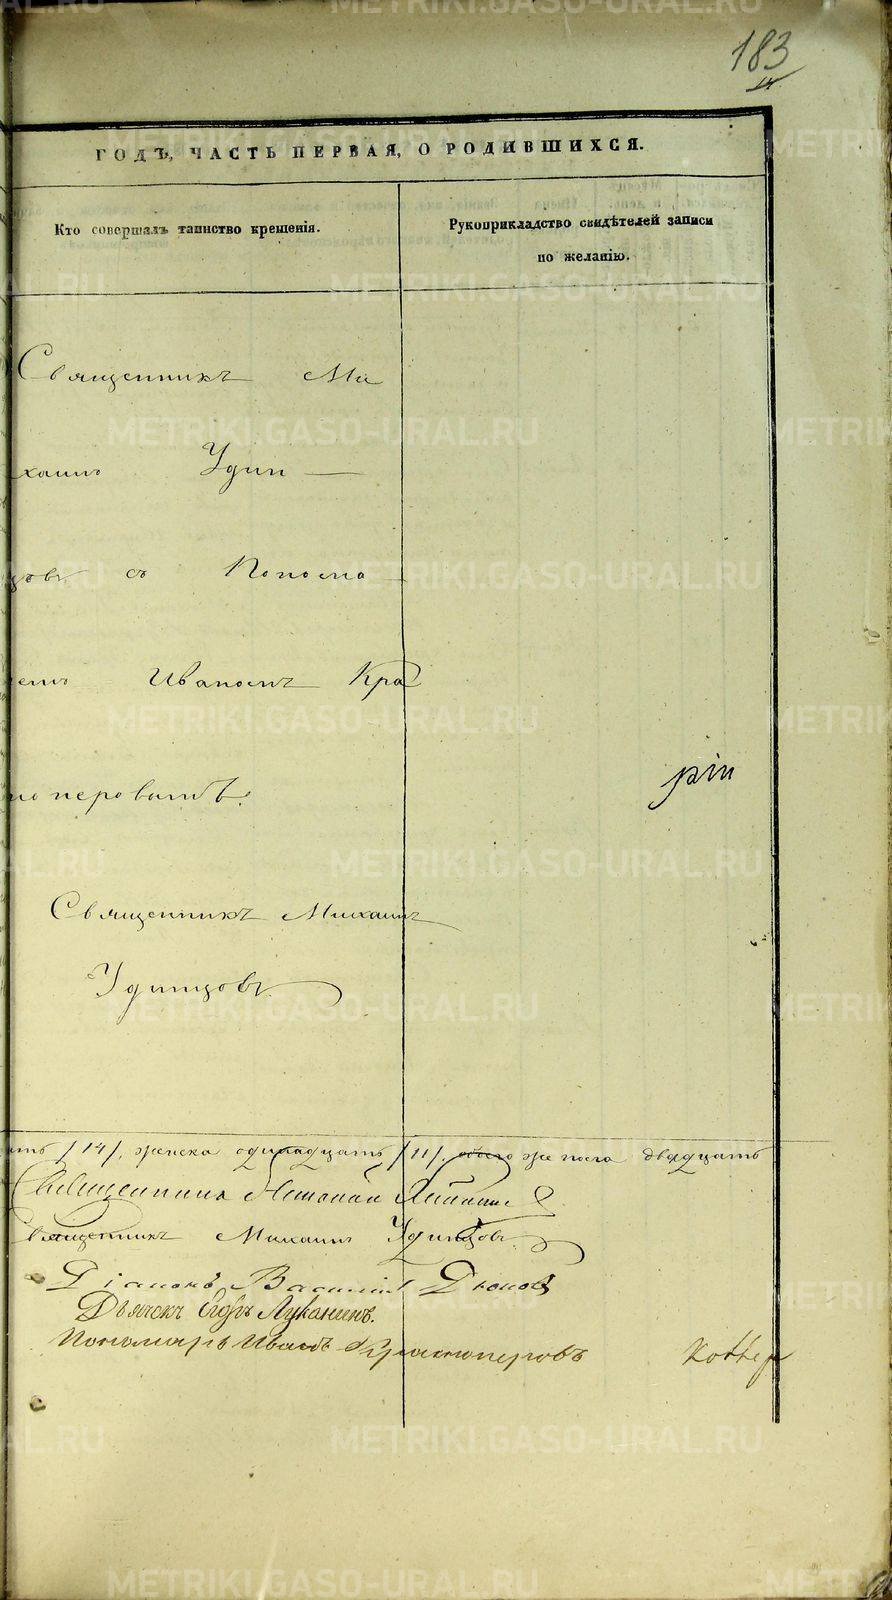 183
ГОДЪ, ЧАСТЬ ПЕРВАЯ, О РОДИВШИХСЯ.
Кто совершалъ таинство крещенія.
Рукоприкладство свидѣтелей записи
по желанію.
Священникъ Ми
хаилъ Удин
цовъ съ Понома
Иваномъ Кра
ноперовымъ.
Священникъ Михаилъ
Удинцовъ
/14/, женска одинадцать /11/, обоего же пола двадцать
Священникъ
Священникъ Михаилъ Удинцовъ
Діаконъ Василій
Дьячекъ Егоръ Луканинъ.
Пономарь Иванъ Красноперовъ
METRIKI.GASO-URAL.RU